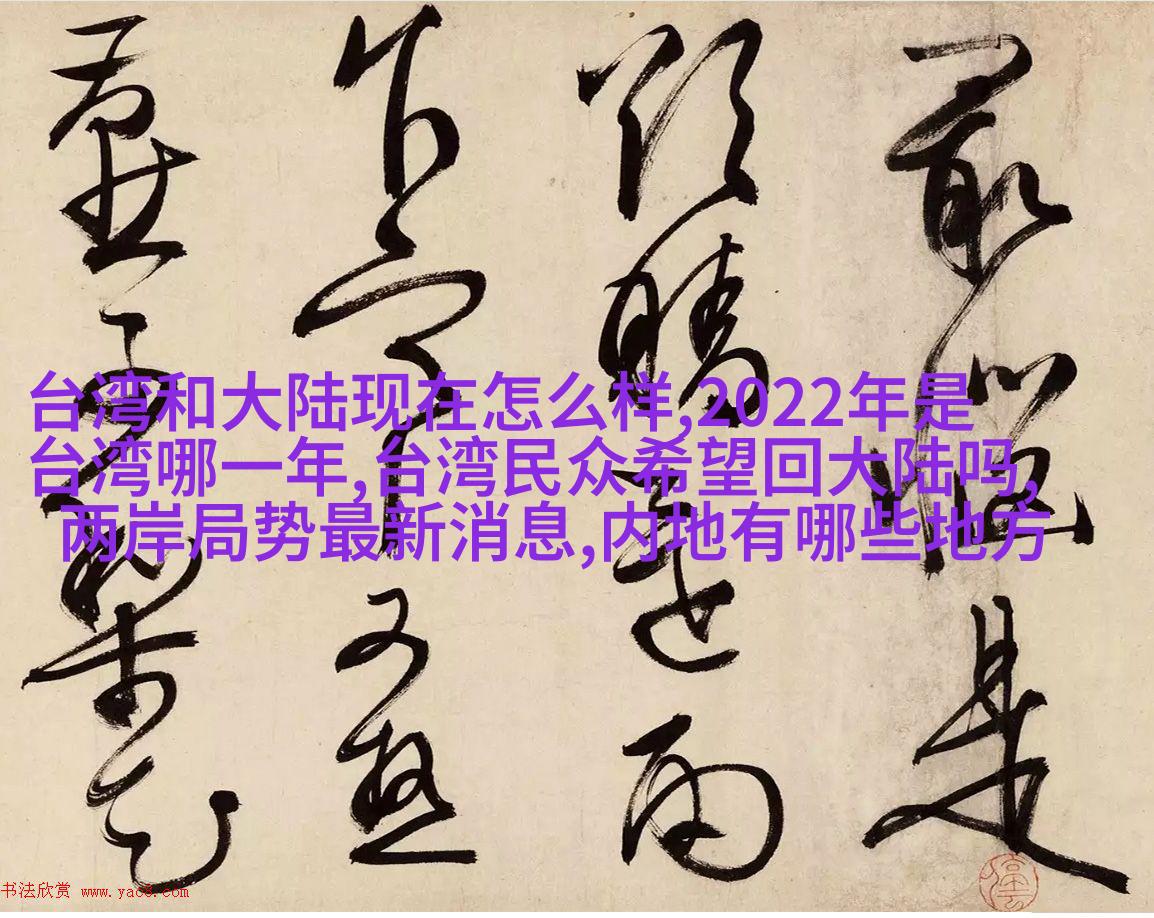 最惱是
欲晴還雨
乍寒又熱
燕子梨花
台湾和大陆现在怎么样,2022年是
台湾哪一年,台湾民众希望回大陆吗,
两岸局势最新消息,内地有哪些地方
书法欣赏 www.yac8.com